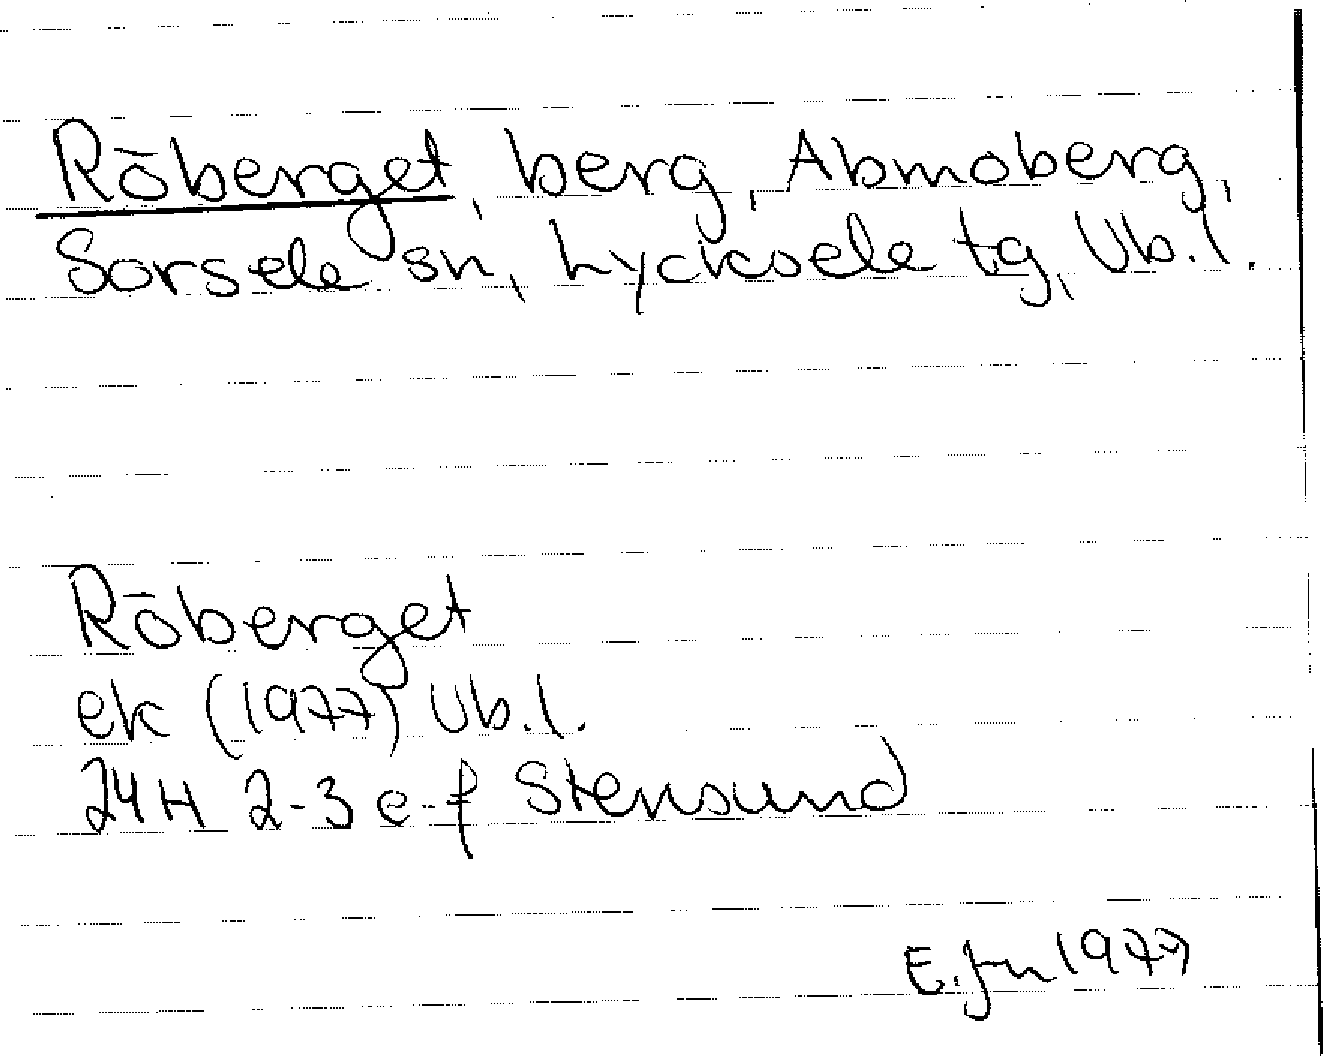 Röberget, berg, Abmoberg,
Sorsele sn, Lycksele tg, Vb.l.
Röberget
ek (1977) Vb.l.
24H 2-3 e-f Stensund
E. Jn 1977